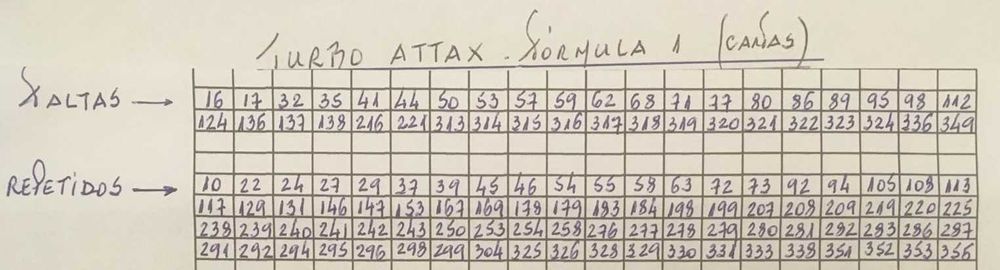 TURBO ATTAX. FÓRMULA 1 (CAÑAS)
FALTAS → 16 17 32 35 41 44 50 53 57 59 62 68 71 77 80 86 89 95 98 112
124 136 137 138 216 221 313 314 315 316 317 318 319 320 321 322 323 324 336 349
REPETIDOS → 10 22 24 27 29 37 39 45 46 54 55 58 63 72 73 92 94 105 108 113
117 129 131 146 147 153 167 169 178 179 183 184 198 199 207 208 209 219 220 225
238 239 240 241 242 243 250 253 254 258 276 277 278 279 280 281 282 283 286 287
291 292 294 295 296 298 299 304 325 326 328 329 330 331 333 338 351 352 353 356